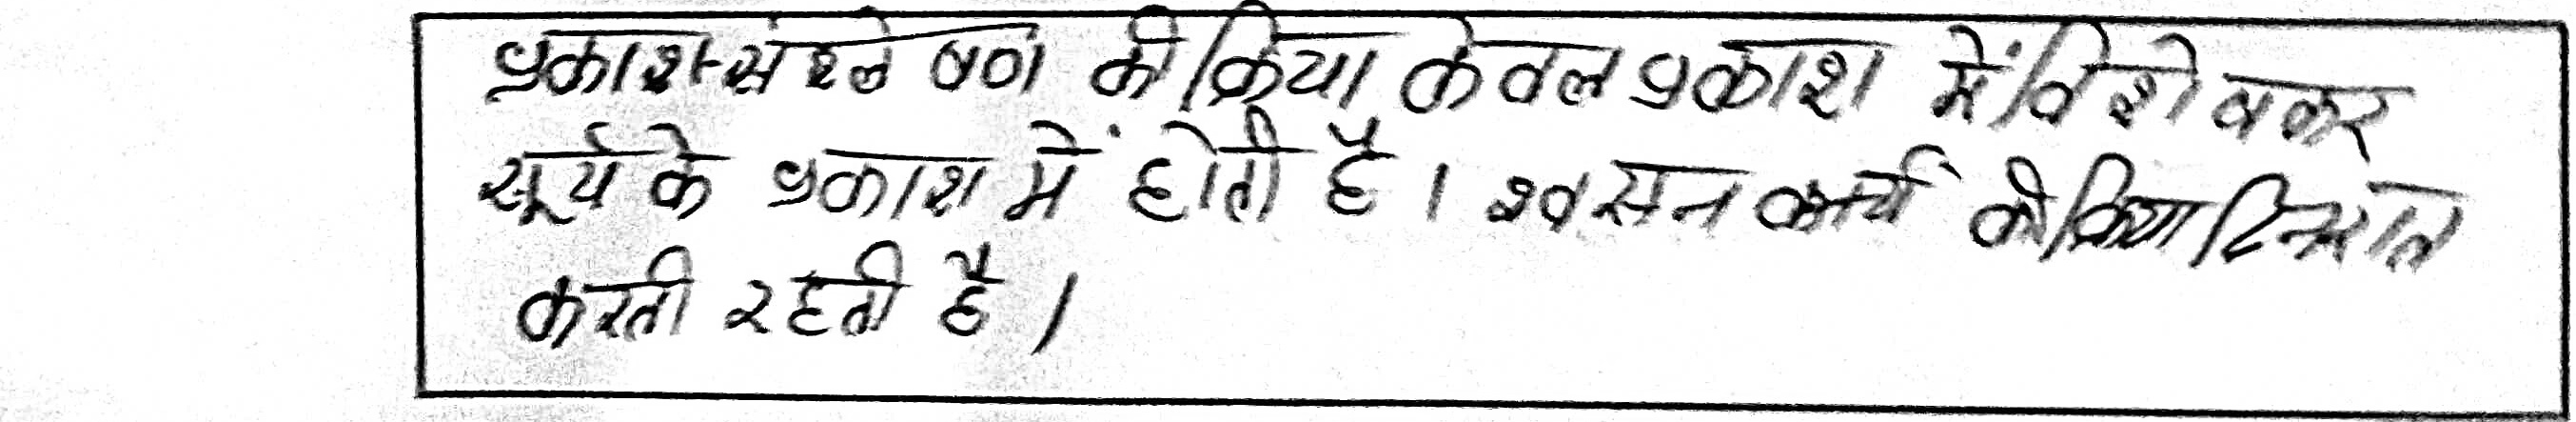 प्रकाश-संश्लेषण की क्रिया केवल प्रकाश में विशेषकर
सूर्य के प्रकाश में होती है। श्वसन कार्य की क्रिया दिनरात
करती रहती है।